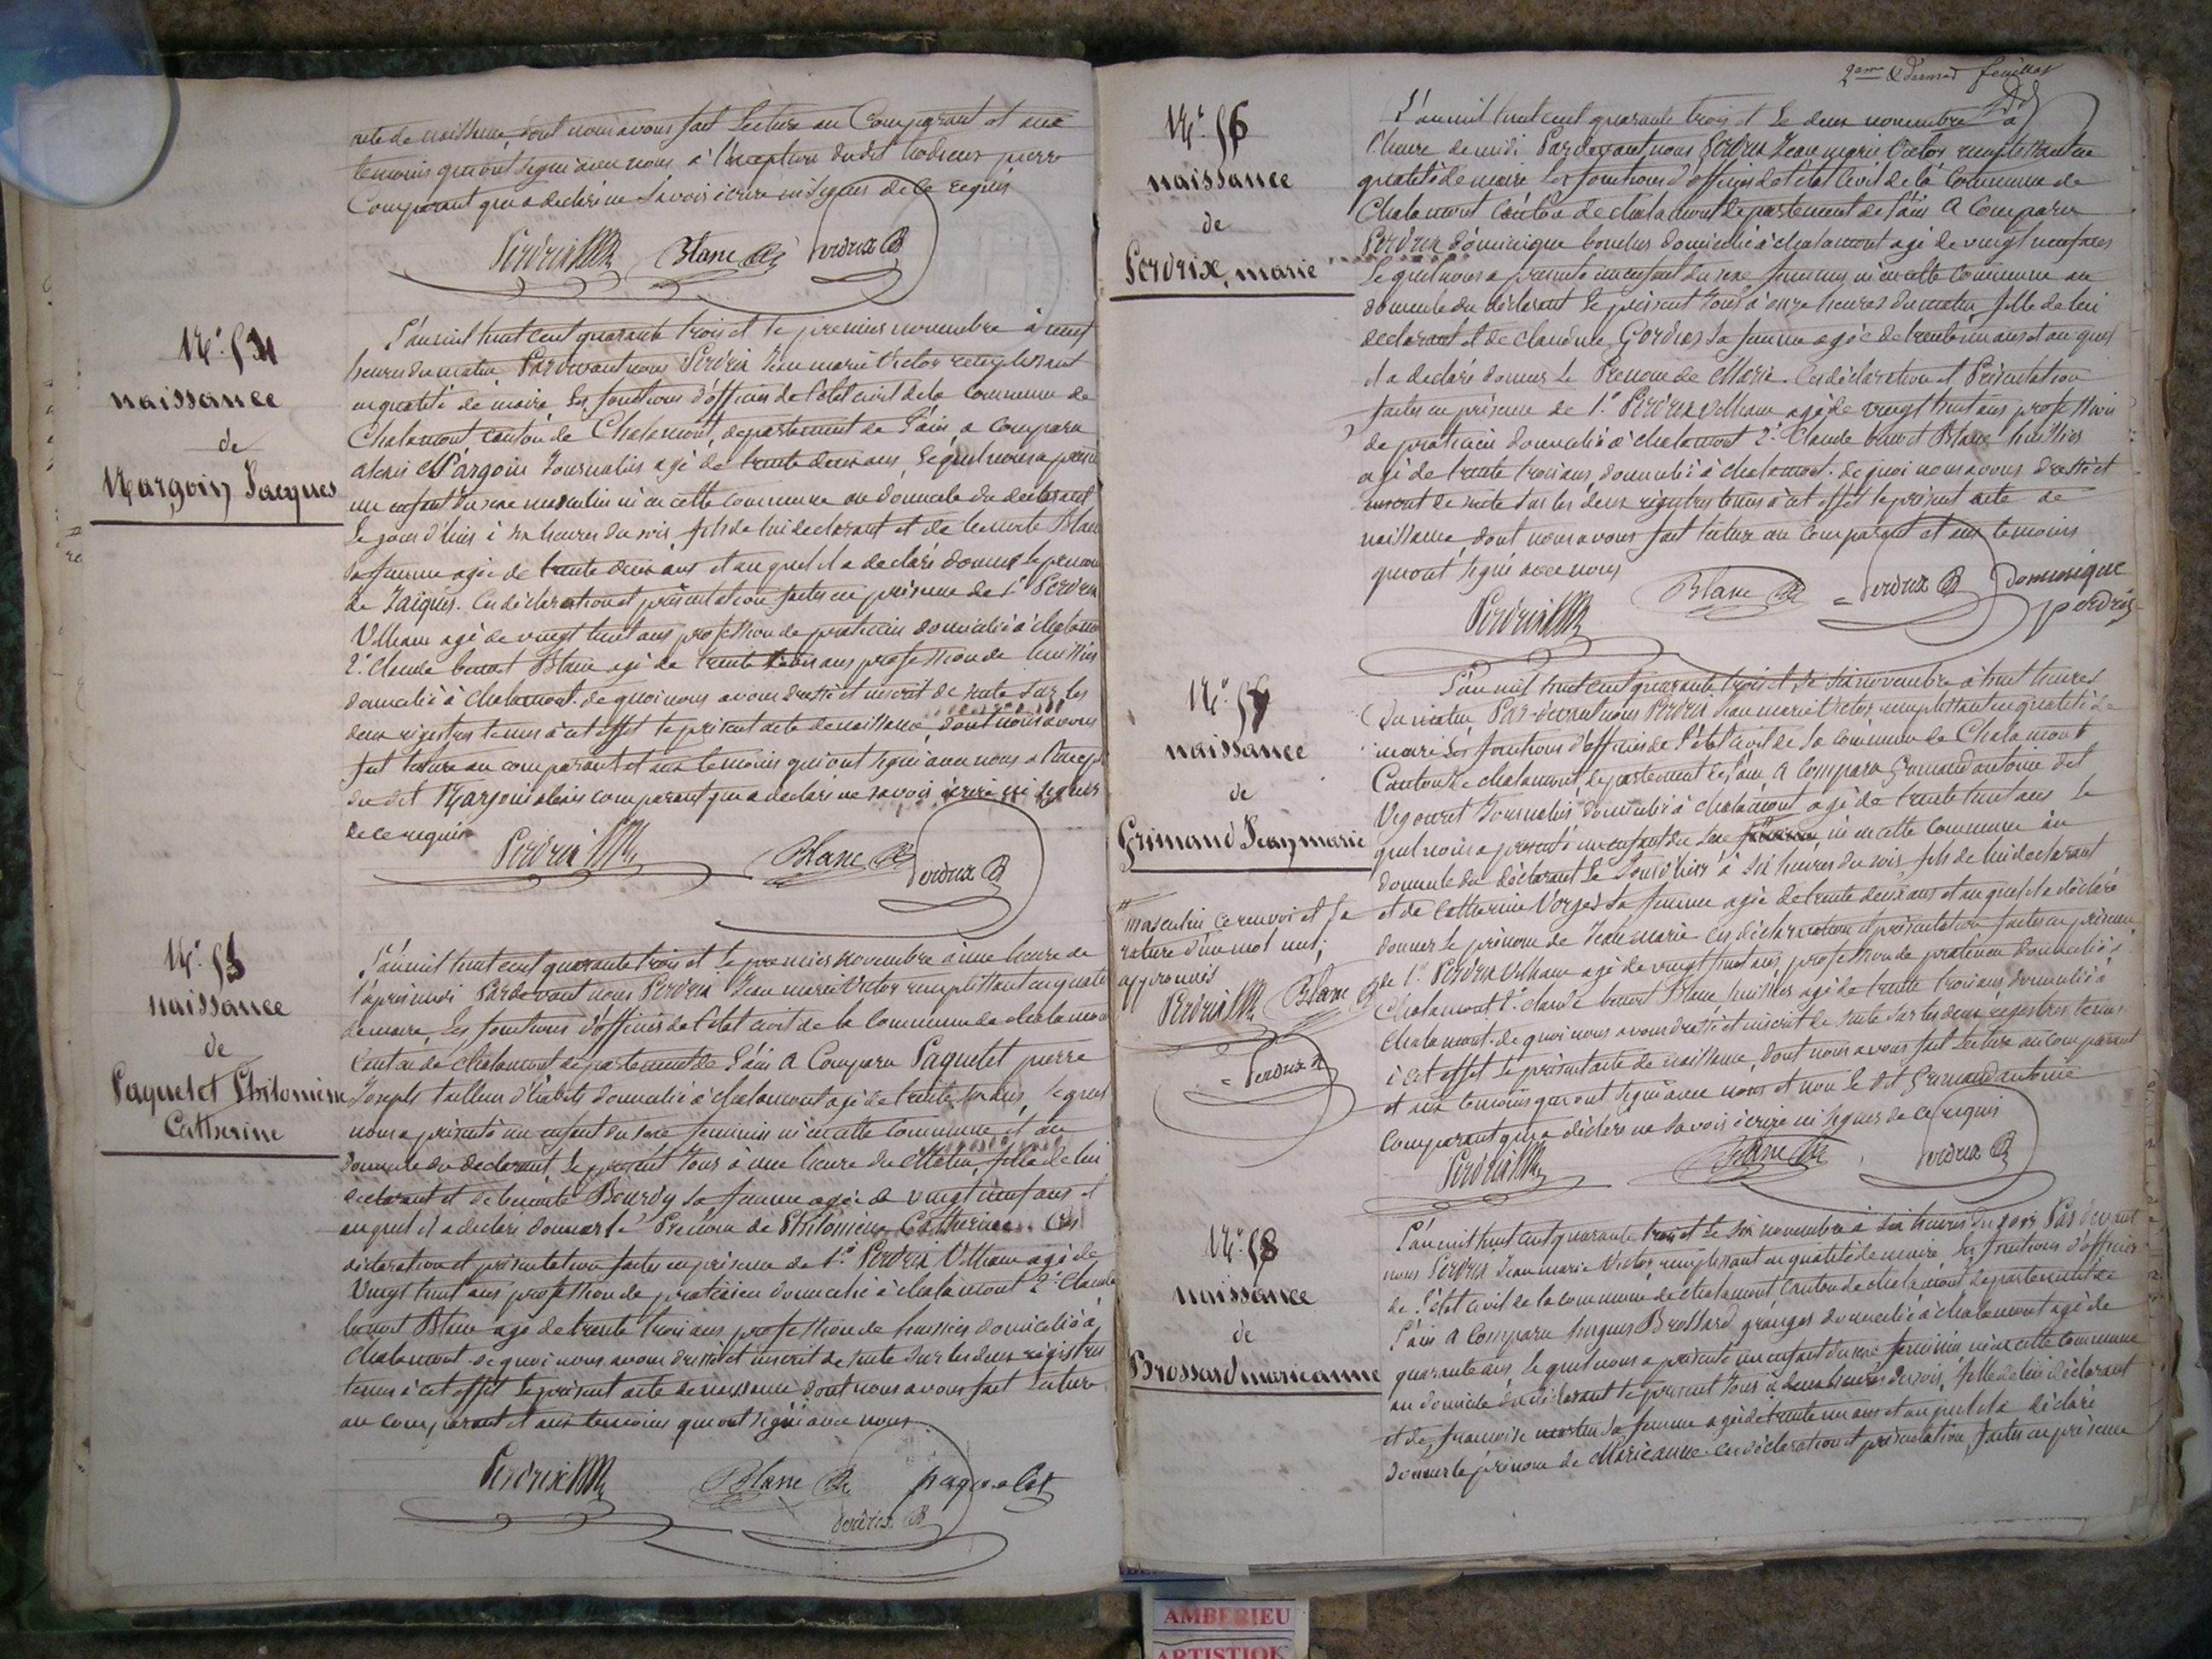 acte de naissance, dont nous avons fait Lecture au Comparant et aux
temoins qui ont signé avec nous à l'exception dudit hodieux pierre
Comparant qui a declaré ne Savoir écrire ni Signer de Ce requis
Perdrix Blanc Perdrix
N.° 54
naissance
de
Margoin Jacques
L'an mil huit cent quarante trois et le premier novembre à neuf
heures du matin Pardevant nous Perdrix Jean marie Victor remplissant
en qualité de maire Les fonctions d'officier de l'état civil de la Commune de
Chalamont canton de Chalamont, departement de l'ain a Comparu
alexis Margoin Journalier agé de trente deux ans, Lequel nous a présenté
un enfant du sexe masculin né en cette Commune au domicile du declarant
Le jour d'hier à six heures du soir, fils de lui declarant et de benoite Blanc
Sa femme agée de trente deux ans et au quel il a declaré donner le prenom
de Jacques. Ces déclaration et présentation faites en présence de 1° Perdrix
Villiam agé de vingt huit ans profession de praticien domicilié à chalamont
2° Claude benoit Blanc agé de trente trois ans profession de huissier
domicilié à Chalamont. de quoi nous avons dressé et inscrit de suite Sur les
deux régistres tenus à cet effet le présent acte de naissance, dont nous avons
fait lecture au comparant et aux temoins qui ont signé avec nous à l'excep
du dit Margoin alexis comparant qui a declaré ne savoir écrire ni Signer
de Ce requis
Perdrix Blanc Perdrix
N.° 55
naissance
de
Paquelet Philomène
Catherine
L'an mil huit cent quarante trois et Le premier novembre à une heure de
l'apres midi Pardevant nous Perdrix Jean marie Victor remplissant en qualité
de maire Les fonctions d'officier de l'état civil de la Commune de chalamont
Canton de Chalamont departement de l'ain A Comparu Paquelet pierre
Joseph tailleur d'habits domicilié à chalamont agé de trente ans, Lequel
nous a présenté un enfant du sexe feminin né en cette Commune et au
domicile du declarant, Le present Jour à une heure du Matin, fille de lui
declarant et de benoite Bourdy Sa femme agée de vingt neuf ans et
au quel il a déclaré donner le Prénom de Philomène Catherine. Ces
déclaration et présentation faites en présence de 1° Perdrix Villiam agé de
Vingt huit ans profession de praticien domicilié à chalamont 2° Claude
benoit Blanc agé de trente trois ans profession de huissier domicilié à
Chalamont. de quoi nous avons dressé et inscrit de suite Sur les deux régistres
tenus à cet effet Le présent acte de naissance dont nous avons fait Lecture
au comparant et aux temoins qui ont signé avec nous
Perdrix Blanc paquelet
Perdrix
2eme & dernier feuillet
N.° 56
naissance
de
Perdrix, marie
L'an mil huit cent quarante trois et Le deux novembre à
l'heure de midi Pardevant nous Perdrix Jean marie Victor remplissant en
qualité de maire Les fonctions d'officier de l'état Civil de la Commune de
Chalamont Canton de chalamont departement de l'ain A Comparu
Perdrix dominique boucher domicilié à chalamont agé de vingt neuf ans
Le quel nous a présenté un enfant du sexe feminin né en cette Commune au
domicile du déclarant le présent Jour à onze heures du matin fille de lui
declarant et de Claudine Sa femme agée de trente un ans et au quel
il a declaré donner le Prenom de Marie. Ces déclaration et Présentation
faites en présence de 1° Perdrix Villiam agé de vingt huit ans profession
de praticien domicilié à chalamont 2° Claude benoit Blanc huissier
agé de trente trois ans, domicilié à chalamont. de quoi nous avons dressé et
inscrit de suite Sur les deux régistres tenus à cet effet le présent acte de
naissance, dont nous avons fait lecture au comparant et aux temoins
qui ont signé avec nous
Perdrix Blanc Perdrix Dominique
perdrix
N.° 57
naissance
de
Grimand Jeanmarie
L'an mil huit cent quarante trois et le six novembre à huit heures
du matin, Pardevant nous Perdrix Jean marie Victor remplissant en qualité de
maire Les fonctions d'officier de l'état civil de la Commune de Chalamont
Canton de chalamont, departement de l'ain A Comparu Grimand antoine dit
Vigouret Journalier domicilié à Chalamont agé de trente huit ans Le
quel nous a présenté un enfant du Sexe né en cette Commune au
domicile du déclarant Le Jour d'hier à six heures du soir, fils de lui declarant
et de Catherine Vorges Sa femme agée de trente deux ans et au quel il a déclaré
donner le prénom de Jean marie Ces déclaration et présentation faites en présence
de 1° Perdrix Villiam agé de vingt huit ans profession de praticien domicilié à
Chalamont 2° Claude benoit Blanc huissier agé de trente trois ans domicilié à
Chalamont. de quoi nous avons dressé et inscrit de suite Sur les deux régistres tenus
à cet effet Le présent acte de naissance, dont nous avons fait Lecture au comparant
et aux temoins qui ont signé avec nous et non le dit Grimand antoine
Comparant qui a déclaré ne Savoir écrire ni Signer de Ce requis
Perdrix Blanc Perdrix
masculin Ce renvoi et la
rature d'un mot nul,
approuvés
Perdrix Blanc
Perdrix
N.° 58
naissance
de
Brossard marieanne
L'an mil huit cent quarante trois et Le six novembre à six heures du soir Pardevant
nous Perdrix Jean marie Victor, remplissant en qualité de maire Les fonctions d'officier
de l'état civil de la commune de chalamont Canton de chalamont departement de
l'ain A Comparu hugues Brossard, granger domicilié à chalamont agé de
quarante ans, le quel nous a présenté un enfant du sexe feminin né en cette Commune
au domicile du déclarant le present Jour à deux heures du soir, fille de lui déclarant
et de francoise martin Sa femme agée de trente un ans et au quel il a déclaré
donner le prénom de Marieanne. Ces déclaration et présentation faites en présence
AMBERIEU
ARTISTIQ